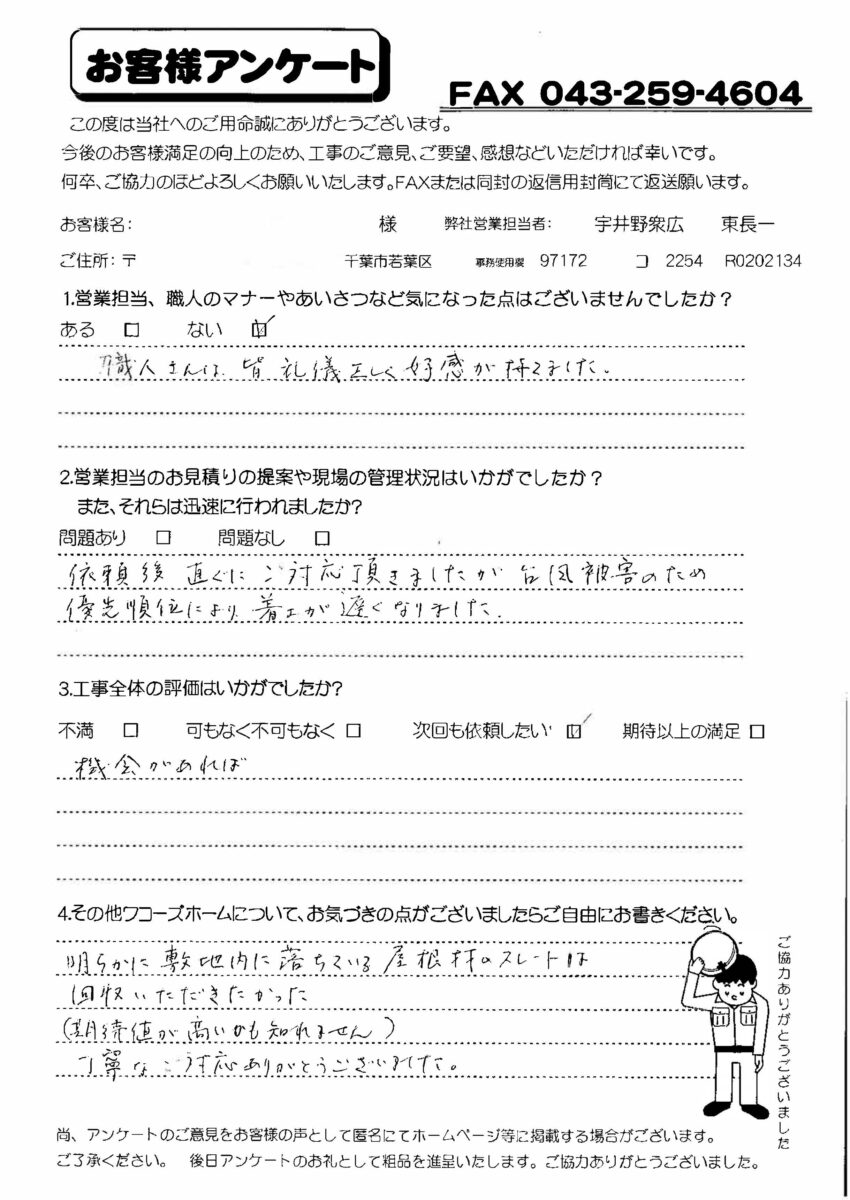 お客様アンケート
FAX 043-259-4604
この度は当社へのご用命誠にありがとうございます。
今後のお客様満足の向上のため、工事のご意見、ご要望、感想などいただければ幸いです。
何卒、ご協力のほどよろしくお願いいたします。FAXまたは同封の返信用封筒にて返送願います。
お客様名: 様 弊社営業担当者: 宇井野衆広 東長一
ご住所:〒 千葉市若葉区 事務使用欄 97172 コ 2254 R0202134
1.営業担当、職人のマナーやあいさつなど気になった点はございませんでしたか?
ある □ ない ☑
職人さんは 皆 礼儀正しく 好感が 持てました。
2.営業担当のお見積りの提案や現場の管理状況はいかがでしたか?
また、それらは迅速に行われましたか?
問題あり □ 問題なし □
依頼後 直ぐに ご対応頂きましたが 台風被害のため
優先順位により、着工が遅くなりました。
3.工事全体の評価はいかがでしたか?
不満 □ 可もなく不可もなく □ 次回も依頼したい ☑ 期待以上の満足 □
機会があれば
4.その他ワコーズホームについて、お気づきの点がございましたらご自由にお書きください。
明らかに敷地内に落ちている屋根材のスレートは
回収いただきたかった
(期待値が高いかも知れません)
丁寧なご対応ありがとうございました。
ご協力ありがとうございました
尚、アンケートのご意見をお客様の声として匿名にてホームページ等に掲載する場合がございます。
ご了承ください。 後日アンケートのお礼として粗品を進呈いたします。ご協力ありがとうございました。